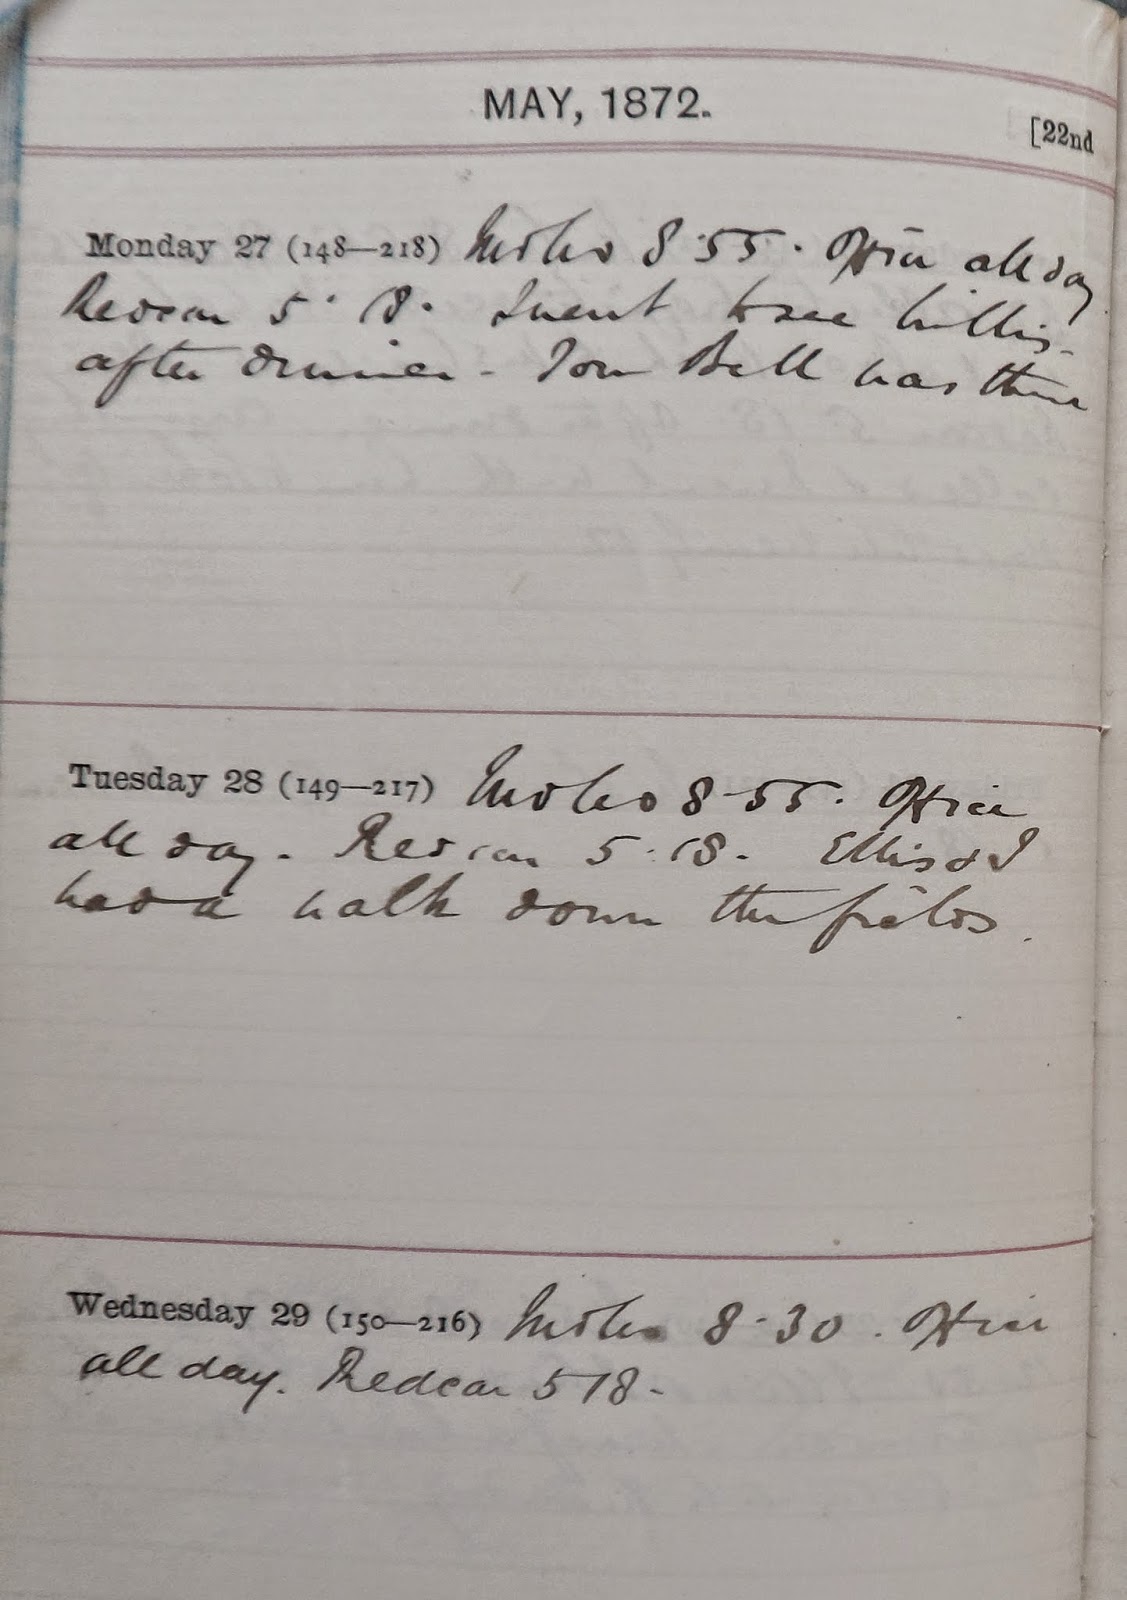 MAY, 1872.
[22nd
Monday 27 (148—218) Midbro 8.55. Office all day
Redcar 5.18. I went to see Willis
after dinner - Tom Bell was there
Tuesday 28 (149—217) Midbro 8-55. Office
all day. Redcar 5.18. Ellis & I
had a walk down the fields.
Wednesday 29 (150—216) Midbro 8.30. Office
all day. Redcar 518-